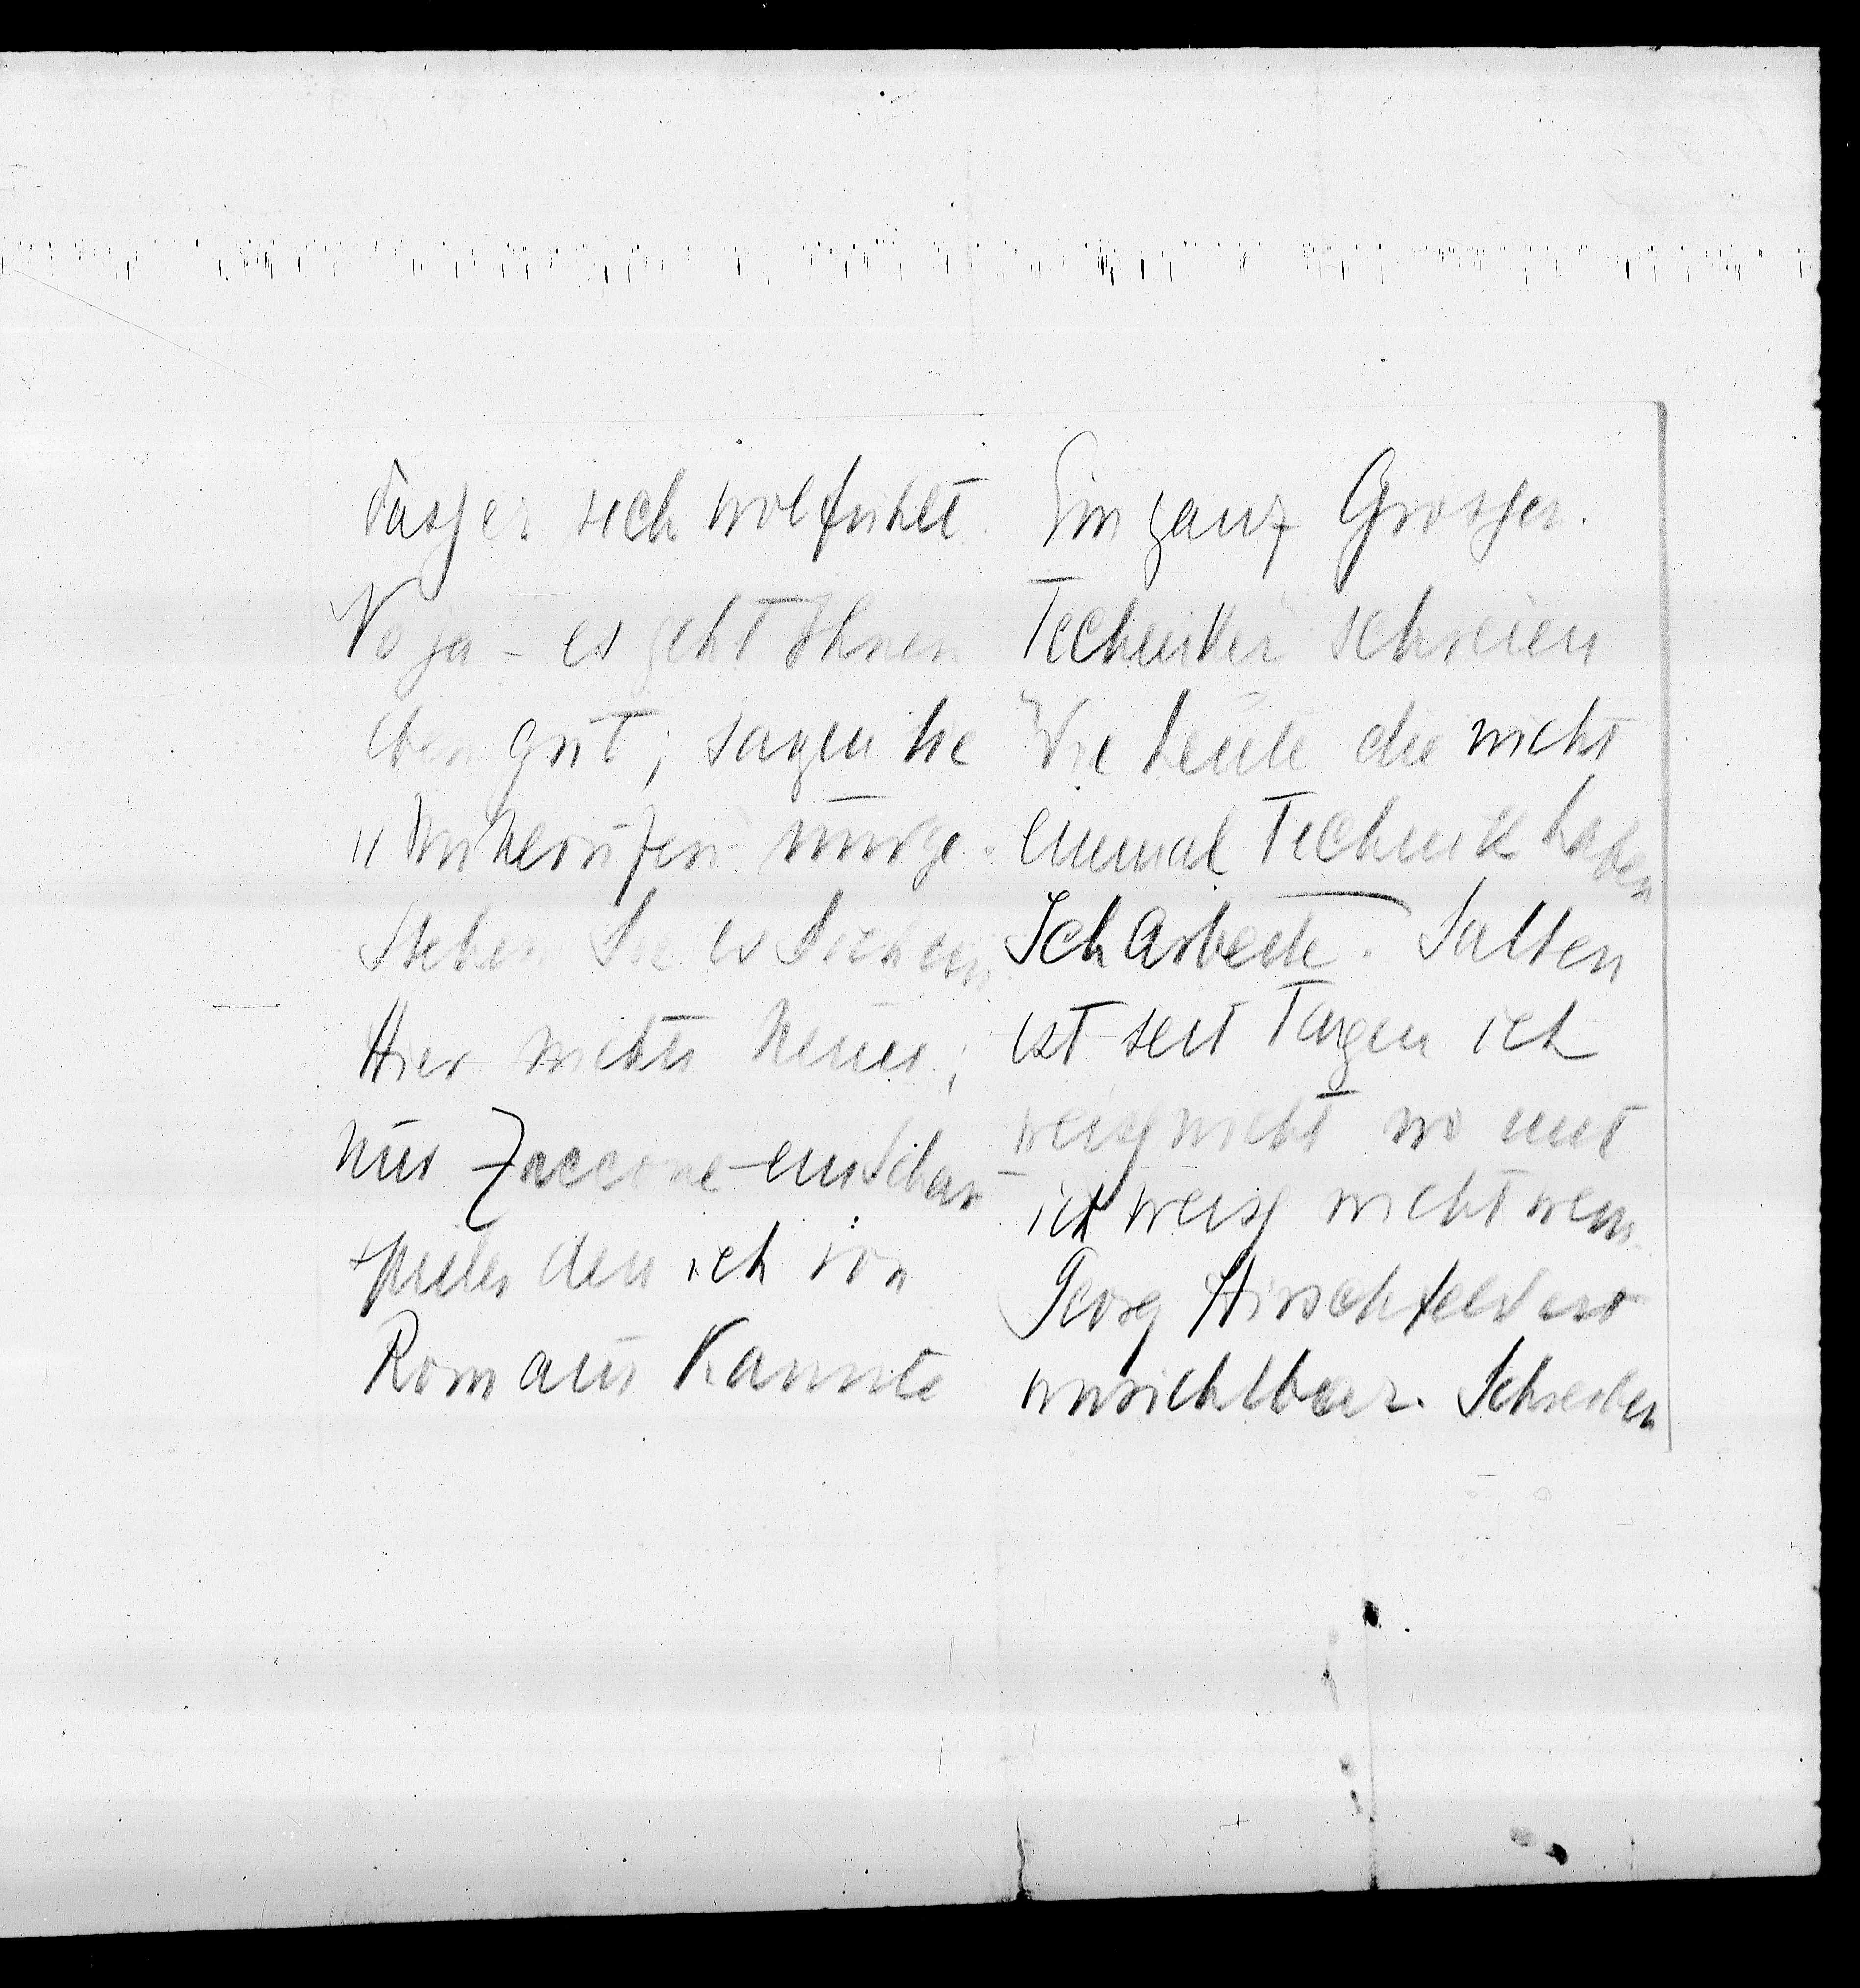 dasſ er sich wol fühlt.
No ja – es geht Ihnen
eben gut; sagen Sie
"Unberufen" und ge-
stehen Sie es Sich ein
Hier nichts Neues;
nur Zaccone – ein Schau
spieler den ich von
Rom aus kannte
Ein ganz Grosſer.
Techniker schreien
die Leute die nicht
einmal Technik haben
Ich arbeite. Salten
ist seit Tagen ich
weisſ nicht wo mit
ich weisſ nicht wem.
Georg Hirschfeld ist
unsichtbar. Schreiben